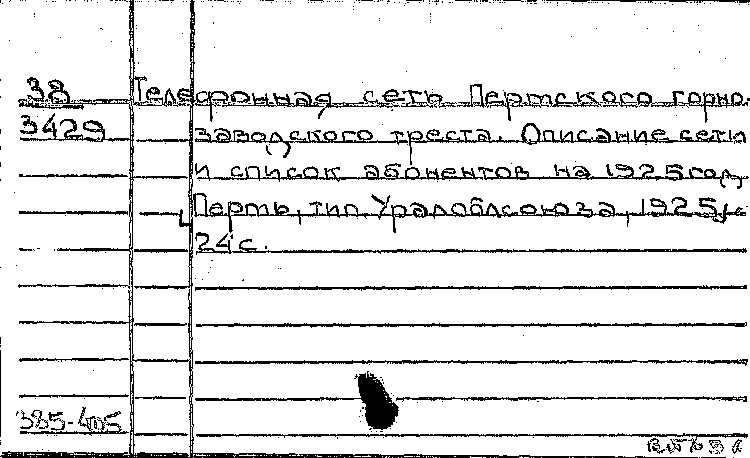 38 Телефонная сеть Пермского горно-
3429 заводского треста. Описание сети
и список абонентов на 1925 год,
Пермь, тип. Уралоблсоюза, 1925,
24 с.